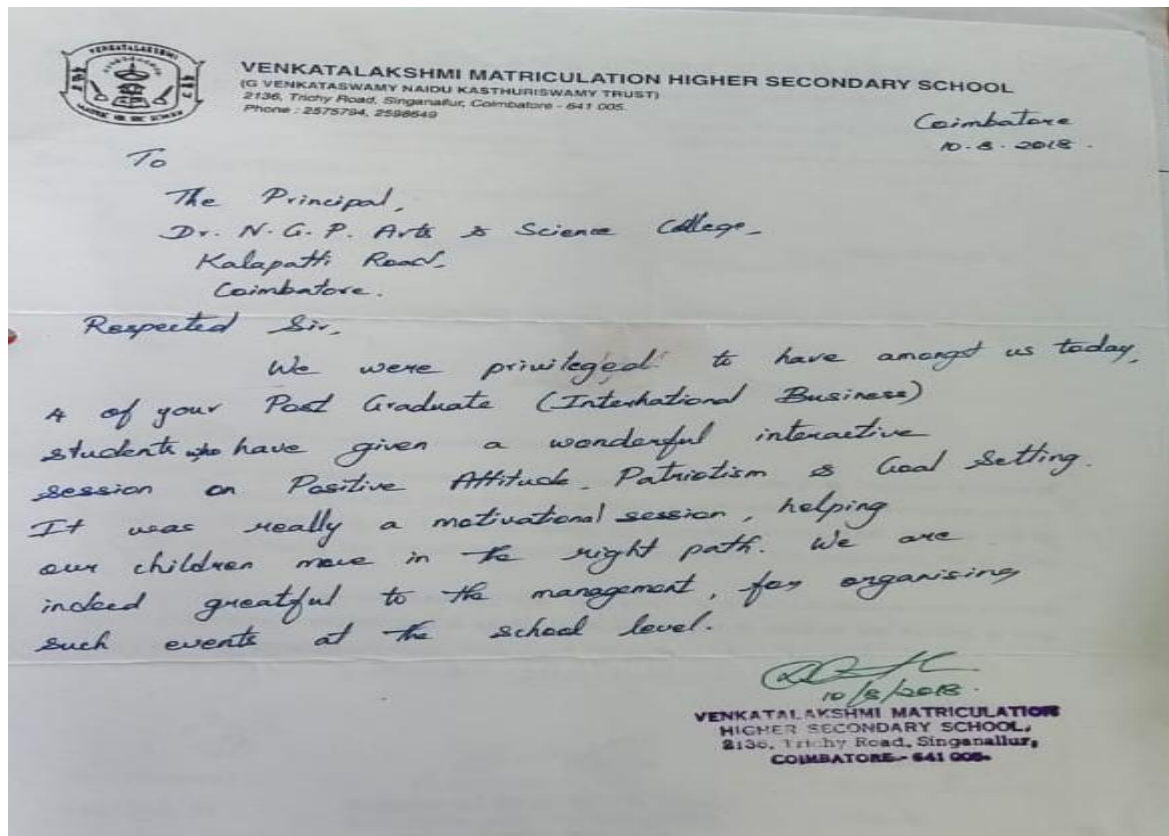 VENKATALAKSHMI
VENKATALAKSHMI MATRICULATION HIGHER SECONDARY SCHOOL
(G VENKATASWAMY NAIDU KASTHURISWAMY TRUST)
2136, Trichy Road, Singanallur, Coimbatore - 641 005.
Phone : 2575794, 2598649
Coimbatore
10.8.2018.
To
The Principal,
Dr. N.G.P. Arts & Science College,
Kalapatti Road,
Coimbatore.
Respected Sir,
We were privileged to have amongst us today,
4 of your Post Graduate (International Business)
students who have given a wonderful interactive
session on Positive Attitude, Patriotism & Goal Setting.
It was really a motivational session, helping
our children move in the right path. We are
indeed greatful to the management, for organising
such events at the school level.
10/8/2018.
VENKATALAKSHMI MATRICULATION
HIGHER SECONDARY SCHOOL,
2136, Trichy Road, Singanallur,
COIMBATORE - 641 005.